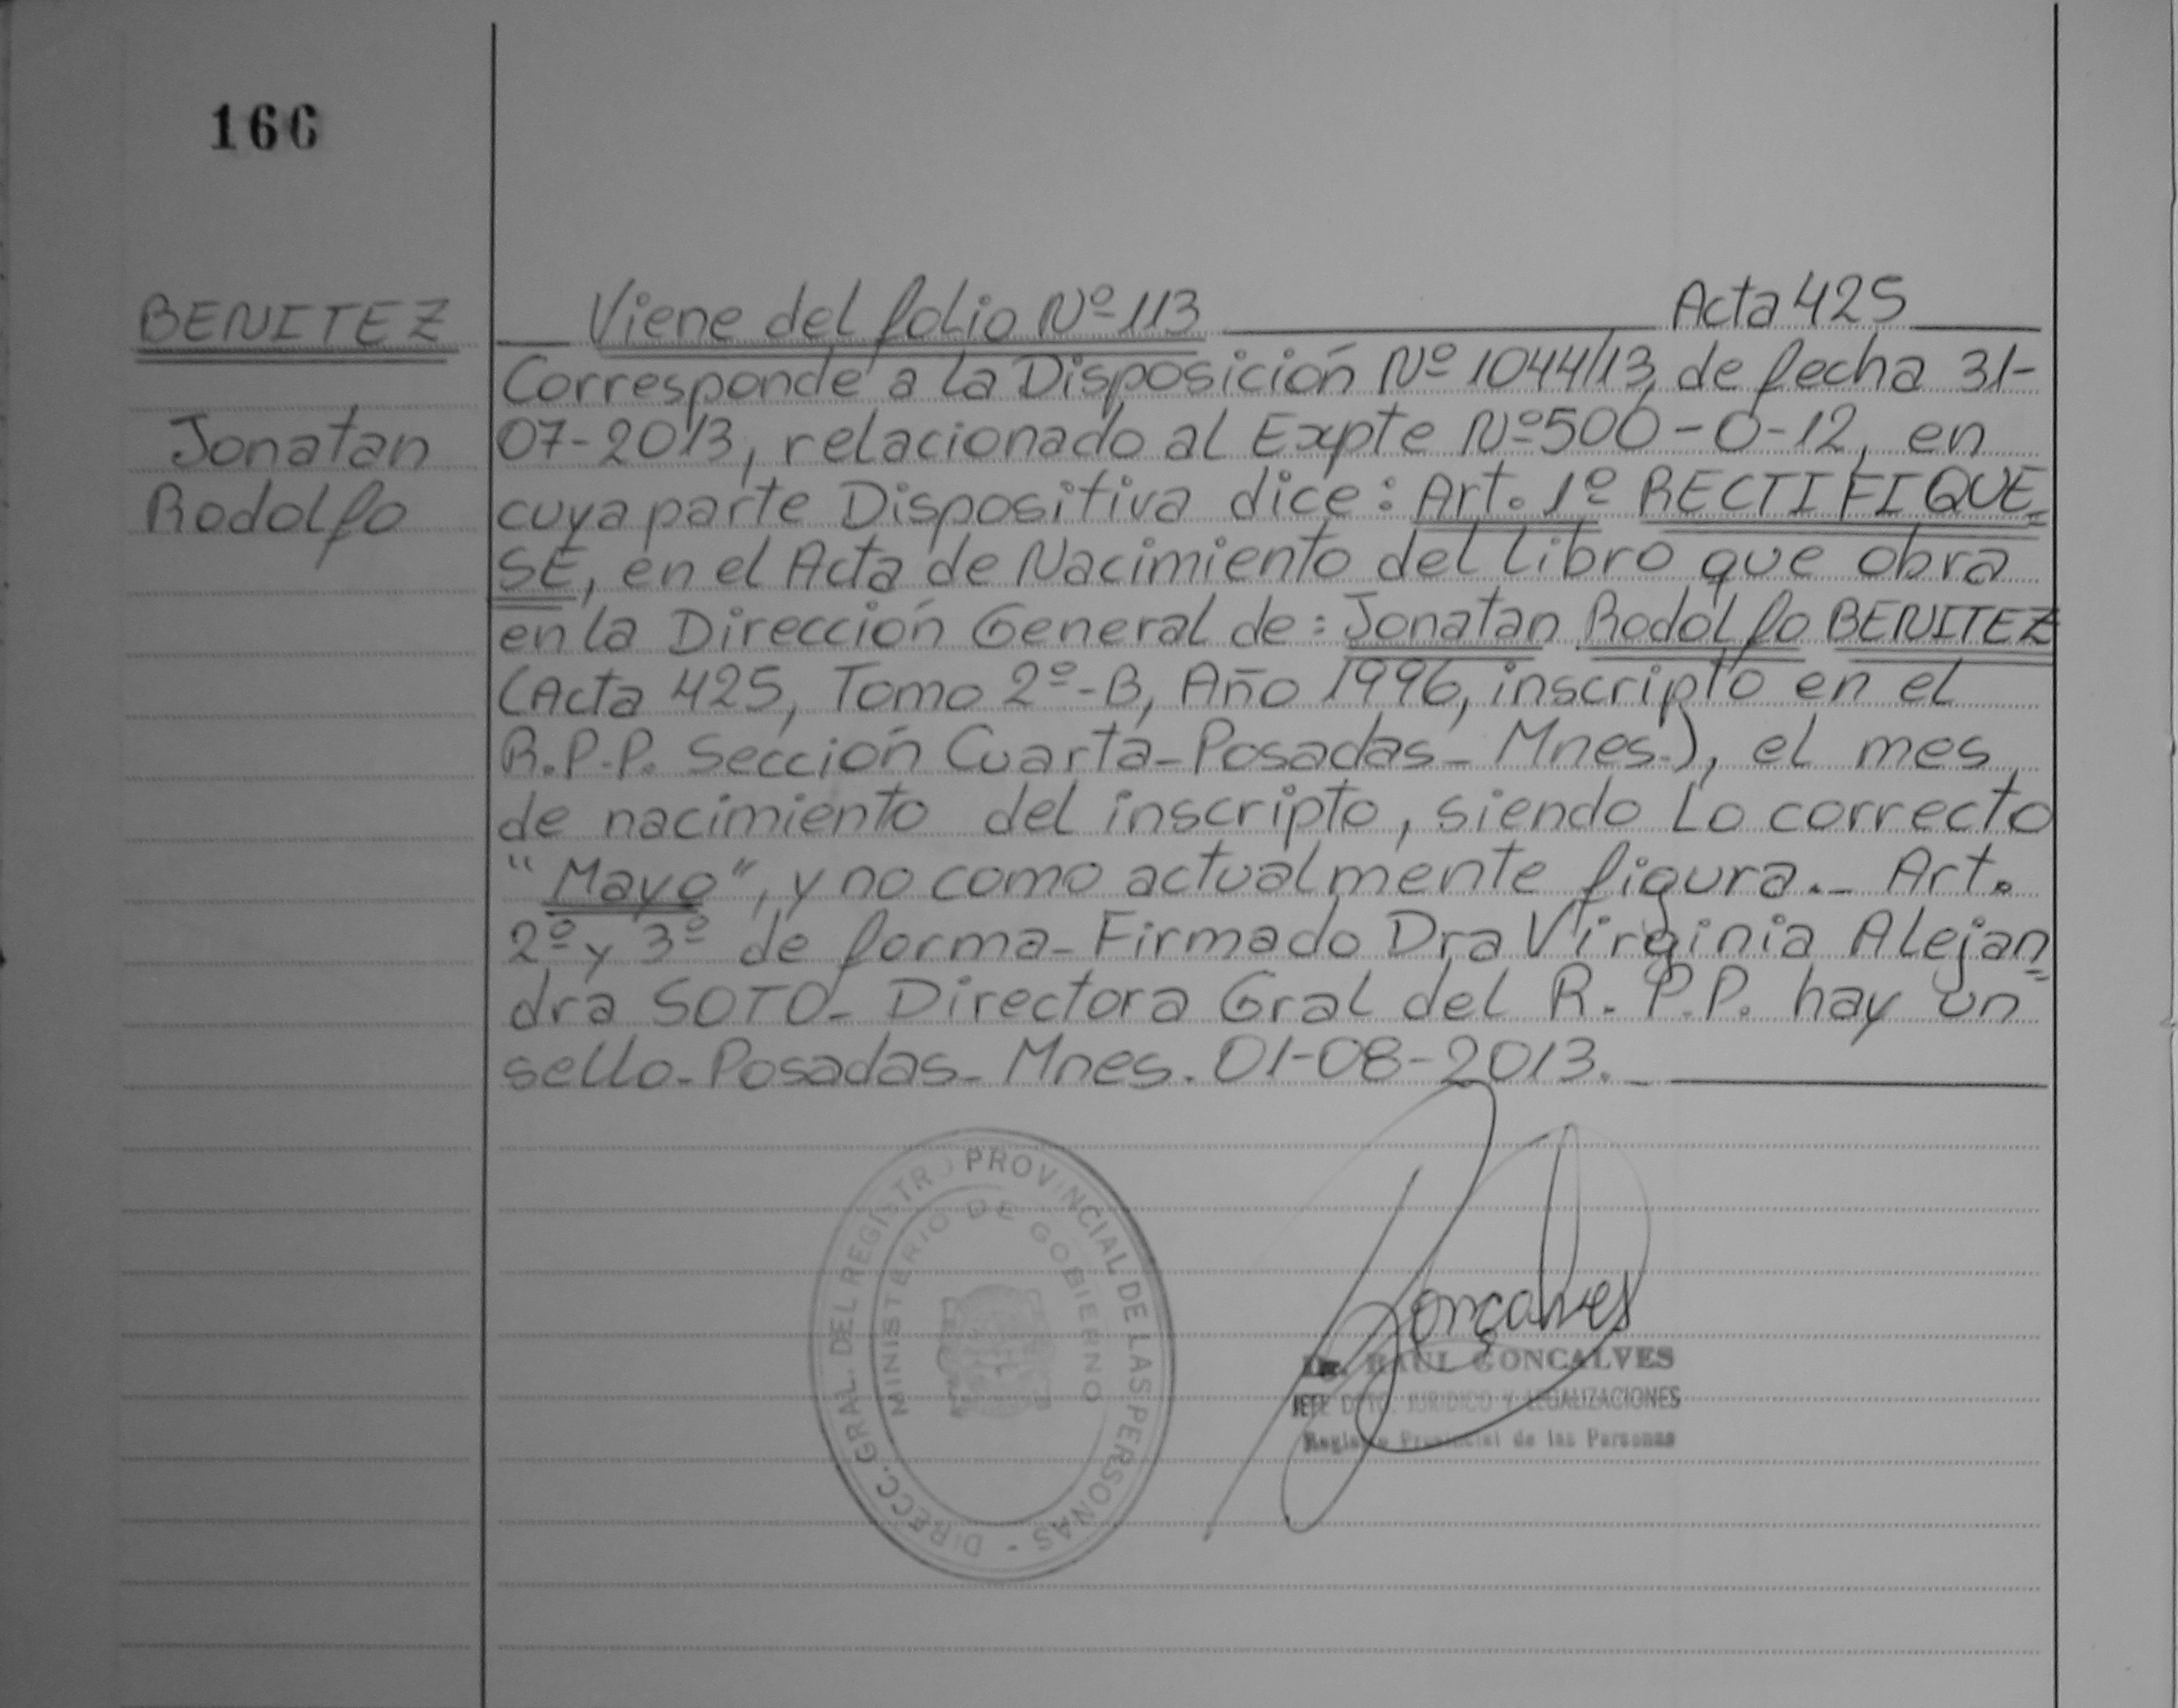 166
BENITEZ
Jonatan
Rodolfo
Viene del folio Nº 113 Acta 425
Corresponde a la Disposición Nº 1044/13, de fecha 31-
07-2013, relacionado al Expte Nº 500-0-12, en
cuya parte Dispositiva dice: Art. 1º RECTIFIQUE=
SE, en el Acta de Nacimiento del Libro que obra
en la Dirección General de: Jonatan Rodolfo BENITEZ
(Acta 425, Tomo 2º-B, Año 1996, inscripto en el
R.P.P. Sección Cuarta-Posadas-Mnes.), el mes
de nacimiento del inscripto, siendo Lo correcto
"Mayo", y no como actualmente figura.- Art.
2º y 3º de forma-Firmado Dra Virginia Alejan=
dra SOTO- Directora Gral del R.P.P. hay un
sello-Posadas-Mnes. 01-08-2013.-
DIRECC. GRAL. DEL REGISTRO PROVINCIAL DE LAS PERSONAS -
MINISTERIO DE GOBIERNO
Gonçalves
Dr. RAUL GONCALVES
JEFE DPTO. JURIDICO Y LEGALIZACIONES
Registro Provincial de las Personas